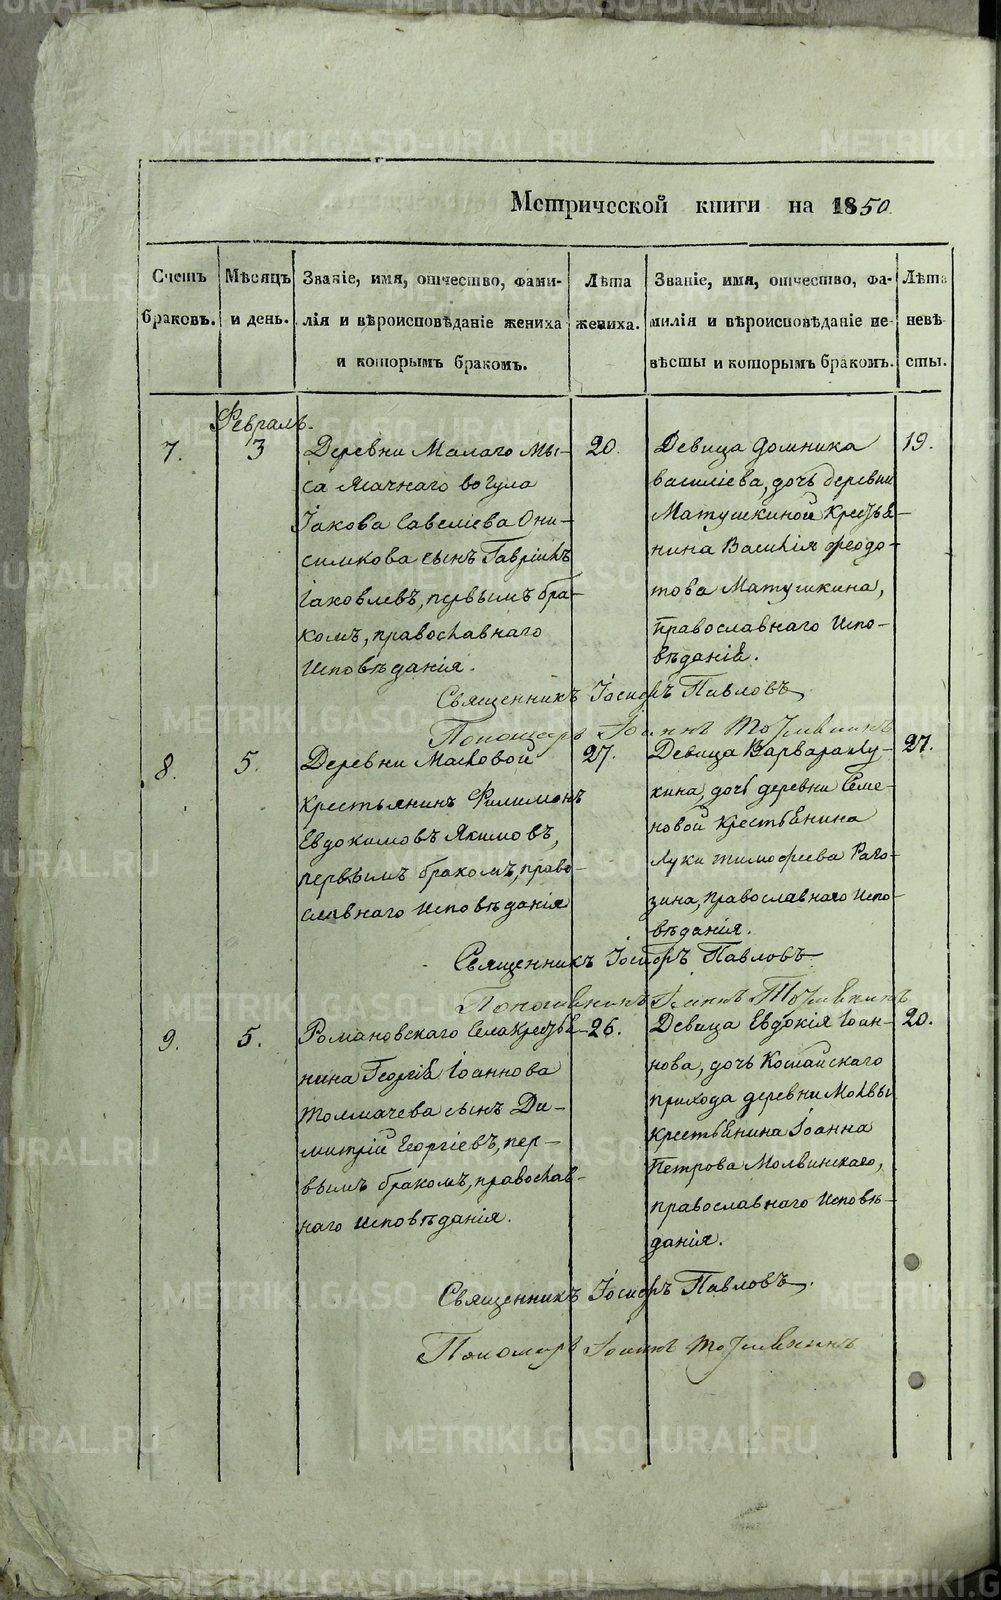 Метрической книги на 1850
Счетъ браковъ.
Мѣсяцъ и день.
Званіе, имя, отчество, фами-
лія и вѣроисповѣданіе жениха
и которымъ бракомъ.
Лѣта жениха.
Званіе, имя, отчество, фа-
милія и вѣроисповѣданіе не-
вѣсты и которымъ бракомъ.
Лѣта невѣ-
сты.
Февраль.
7.
3
Деревни Малаго Мы-
са Ясачнаго вогула
Іакова Савеліева Они-
симкова сынъ Гавріилъ
Іаковлевъ, первымъ бра-
комъ, православнаго
Исповѣданія.
20.
Девица Домника
Василіева, дочь деревни
Матушкиной Крестья-
нина Василія Феодо-
това Матушкина,
Православнаго Испо-
вѣданія.
19.
Священникъ Іосифъ Павловъ
Іоаннъ
8.
5.
Деревни
Крестьянинъ Филимонъ
Евдокимовъ Якимовъ,
первымъ бракомъ, право-
славнаго Исповѣданія
27.
Девица Варвара Лу-
кина, дочь деревни Семе-
новой Крестьянина
Луки Тимофеева Раго-
зина, Православнаго Испо-
вѣданія.
27.
Священникъ Іосифъ Павловъ
Іоаннъ
9.
5.
Романовскаго Села Крестья-
нина Георгія Іоаннова
Толмачева сынъ Ди-
митрій Георгіевъ, пер-
вымъ бракомъ, православ-
наго Исповѣданія.
26.
Девица Евдокія Іоан-
нова, дочь Косвинскаго
прихода деревни Молвы
Крестьянина Іоанна
Петрова Молвинскаго,
православнаго Исповѣ-
данія.
20.
Священникъ Іосифъ Павловъ.
Пономарь Іоаннъ
METRIKI.GASO-URAL.RU